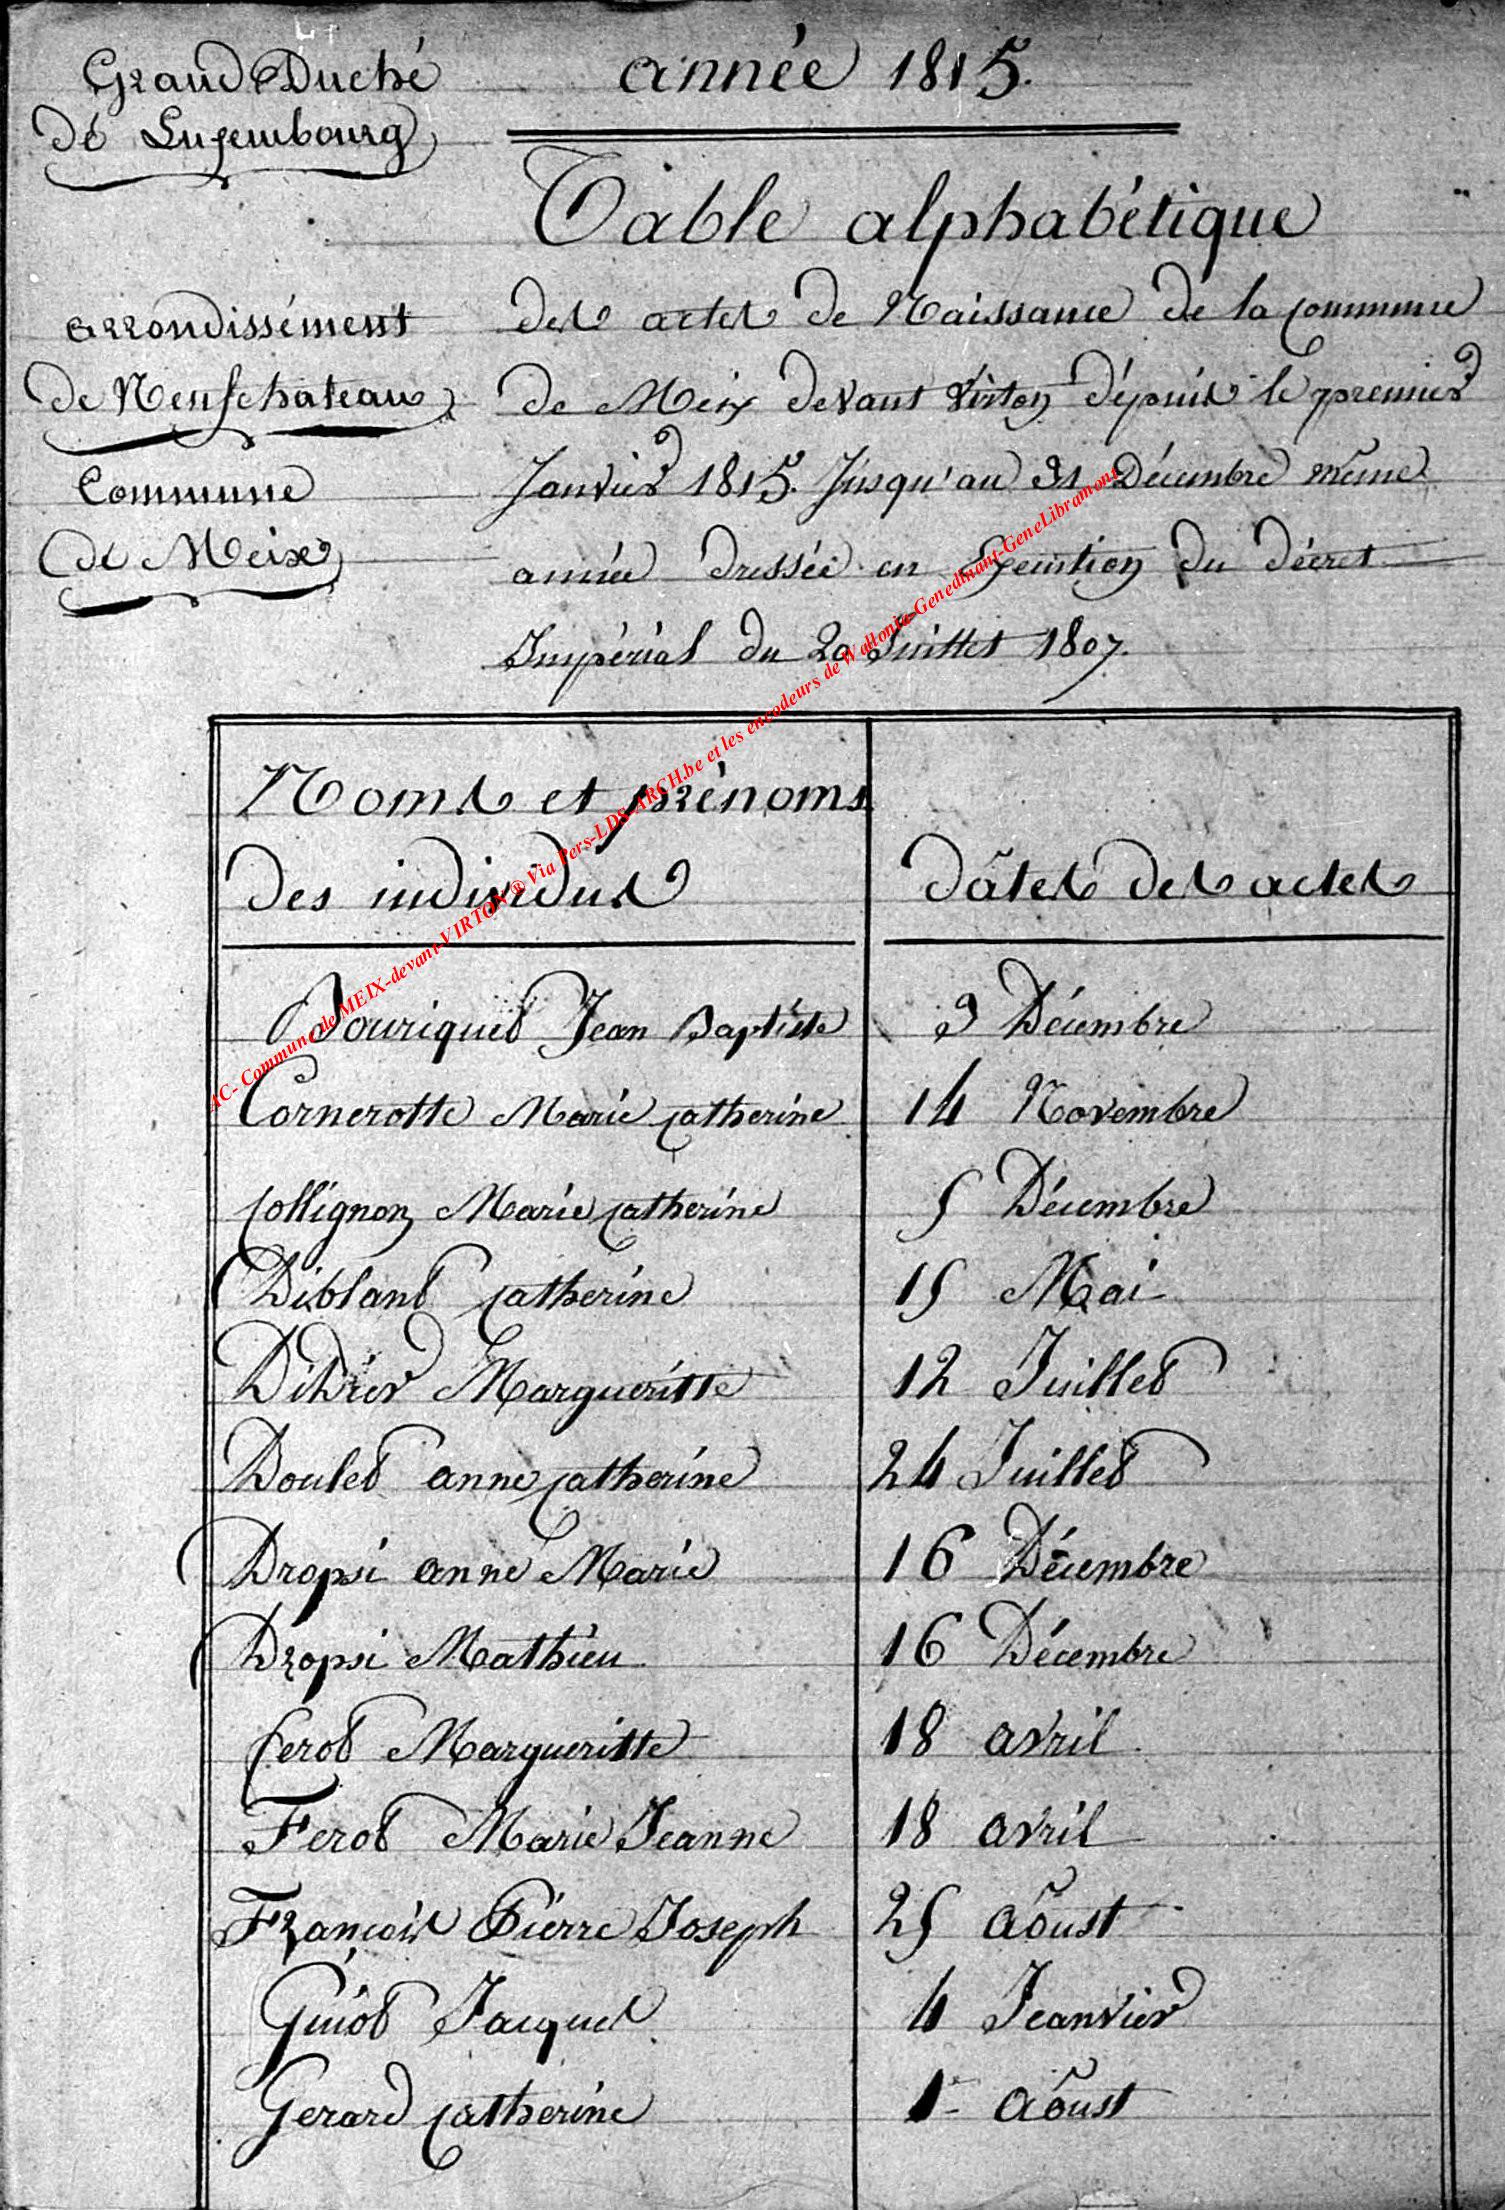 Grand Duché
de Luxembourg
arrondissément
de Neufchateau
Commune
de Meix
année 1815.
Table alphabétique
des actes de Naissance de la commune
de Meix devant Virton dépuis le premier
Janvier 1815. Jusqu'au 31 Décembre même
année dressée en Execution du décret
Impérial du 20 Juillet 1807.
Noms et prénoms
des individus
dâtes des actes
Bouriquet Jean Baptiste 9 Décembre
Cornerotte Marie catherine 14 Novembre
Collignon Marie catherine 5 Décembre
Diblant catherine 15 Mai
Didrier Margueritte 12 Juillet
Doulet anne catherine 24 Juillet
Dropsi anne Marie 16 Décembre
Dropsi Mathieu 16 Décembre
ferot Margueritte 18 avril
Ferot Marie Jeanne 18 avril
François Pierre Joseph 25 Aoust
Guiot Jacques 4 Jeanvier
Gerard catherine 1er Aoust
AC- Commune de MEIX-devant-VIRTON® Via Pers-LDS-ARCH.be et les encodeurs de Wallonie-Genedinant-GeneLibramont